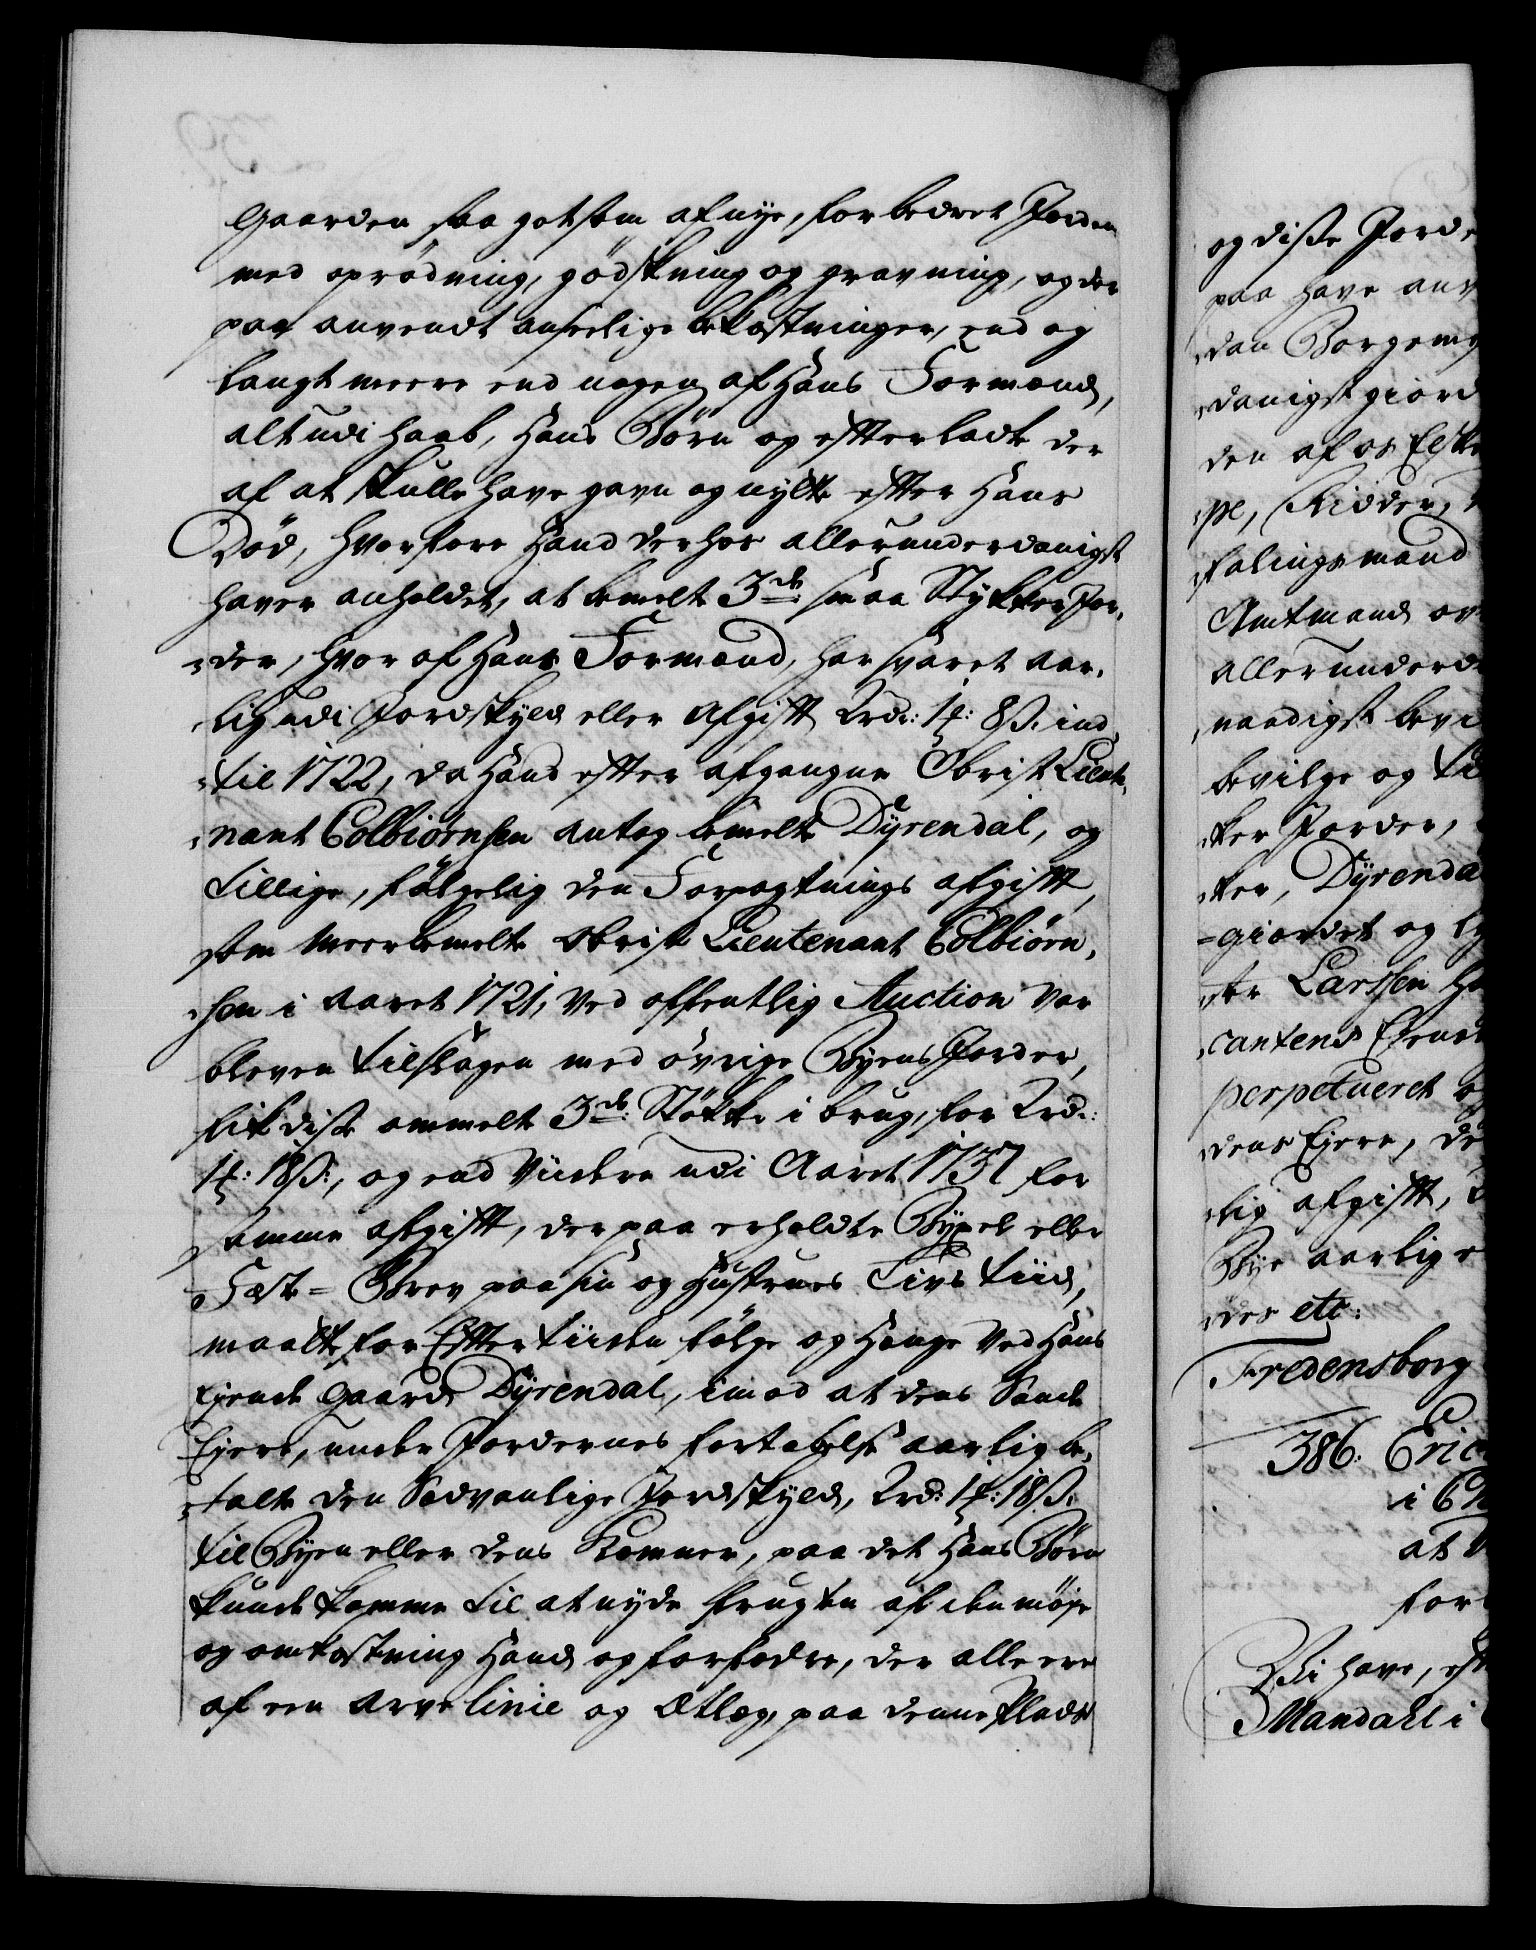 Gaarden saa got som af nye, forbedret Jorden
med oprødning, gødskning og gravning, og der
paa anvendt anseelige bekostninger, end og
langt meere end nogen af Hans Formænd,
alt udi haab, Hans Børn og effterladte der
af at skulle have gavn og nytte effter Hans
Død, hvorfore Hand derhos allerunderdanigst
haver anholdet, at bemelte 3de smaa Stykker Jor„
„der, hvor af Hans Formænd, har svaret aar„
„lig udi Jordskyld eller Afgifft Rdr: 1 ℳ: 8 ß. ind„
„til 1722, da Hans effter afgangne Obrist Lieute„
„nant Colbiørnsen antog bemelte Dyrendal, og
tillige, følgelig den Forpagtnings afgifft,
som meerbemelte Obrist Lieutenant Colbiørn„
„sen i Aaret 1721, ved offentlig Auction var
bleven tilslagen med øvrige Byens Jorder,
fik disse ommelte 3de: Støkker i brug, for Rdr:
1 ℳ: 18 ß:, og end viidere udi Aaret 1737 for
samme afgifft, der paa erholdte Bÿxel eller
Fæste-Brev paa sin og Hustrues Livs tiid,
maatte for Efftertiiden følge og Henge ved Hans
Ejende Gaard Dyrendal, imod at dens Sande
Ejere, under Jordernes fortabelse aarlig be„
„talte den Sædvanlige Jordskyld, Rdr: 1 ℳ: 18 ß:
til Byen eller dens Kemner, paa det Hans Børn
kunde komme til at nyde frugten af den møje
og omkostning Hand og forfædre, der alle ere
af een Arve linie og Ætlæg, paa denne Plads
og disse Jorde
paa have anv
„dan Borgemes
„danigst giord
den af os Elske
„pe, Ridder,
„falingsmand
Amtmand ov
allerunderd
„naadigst bevi
bevilge og ti
„ker Jorder,
„ker, Dyrenda
„giordet og
„ter Larssen
„cantens Eiende
perpetueret
dens Ejere, de
„lig afgifft,
Bye aarlig e
„des etc:
Fredensborg
386. Eric
i C
at
for
Vi have, eff
Mandahl i